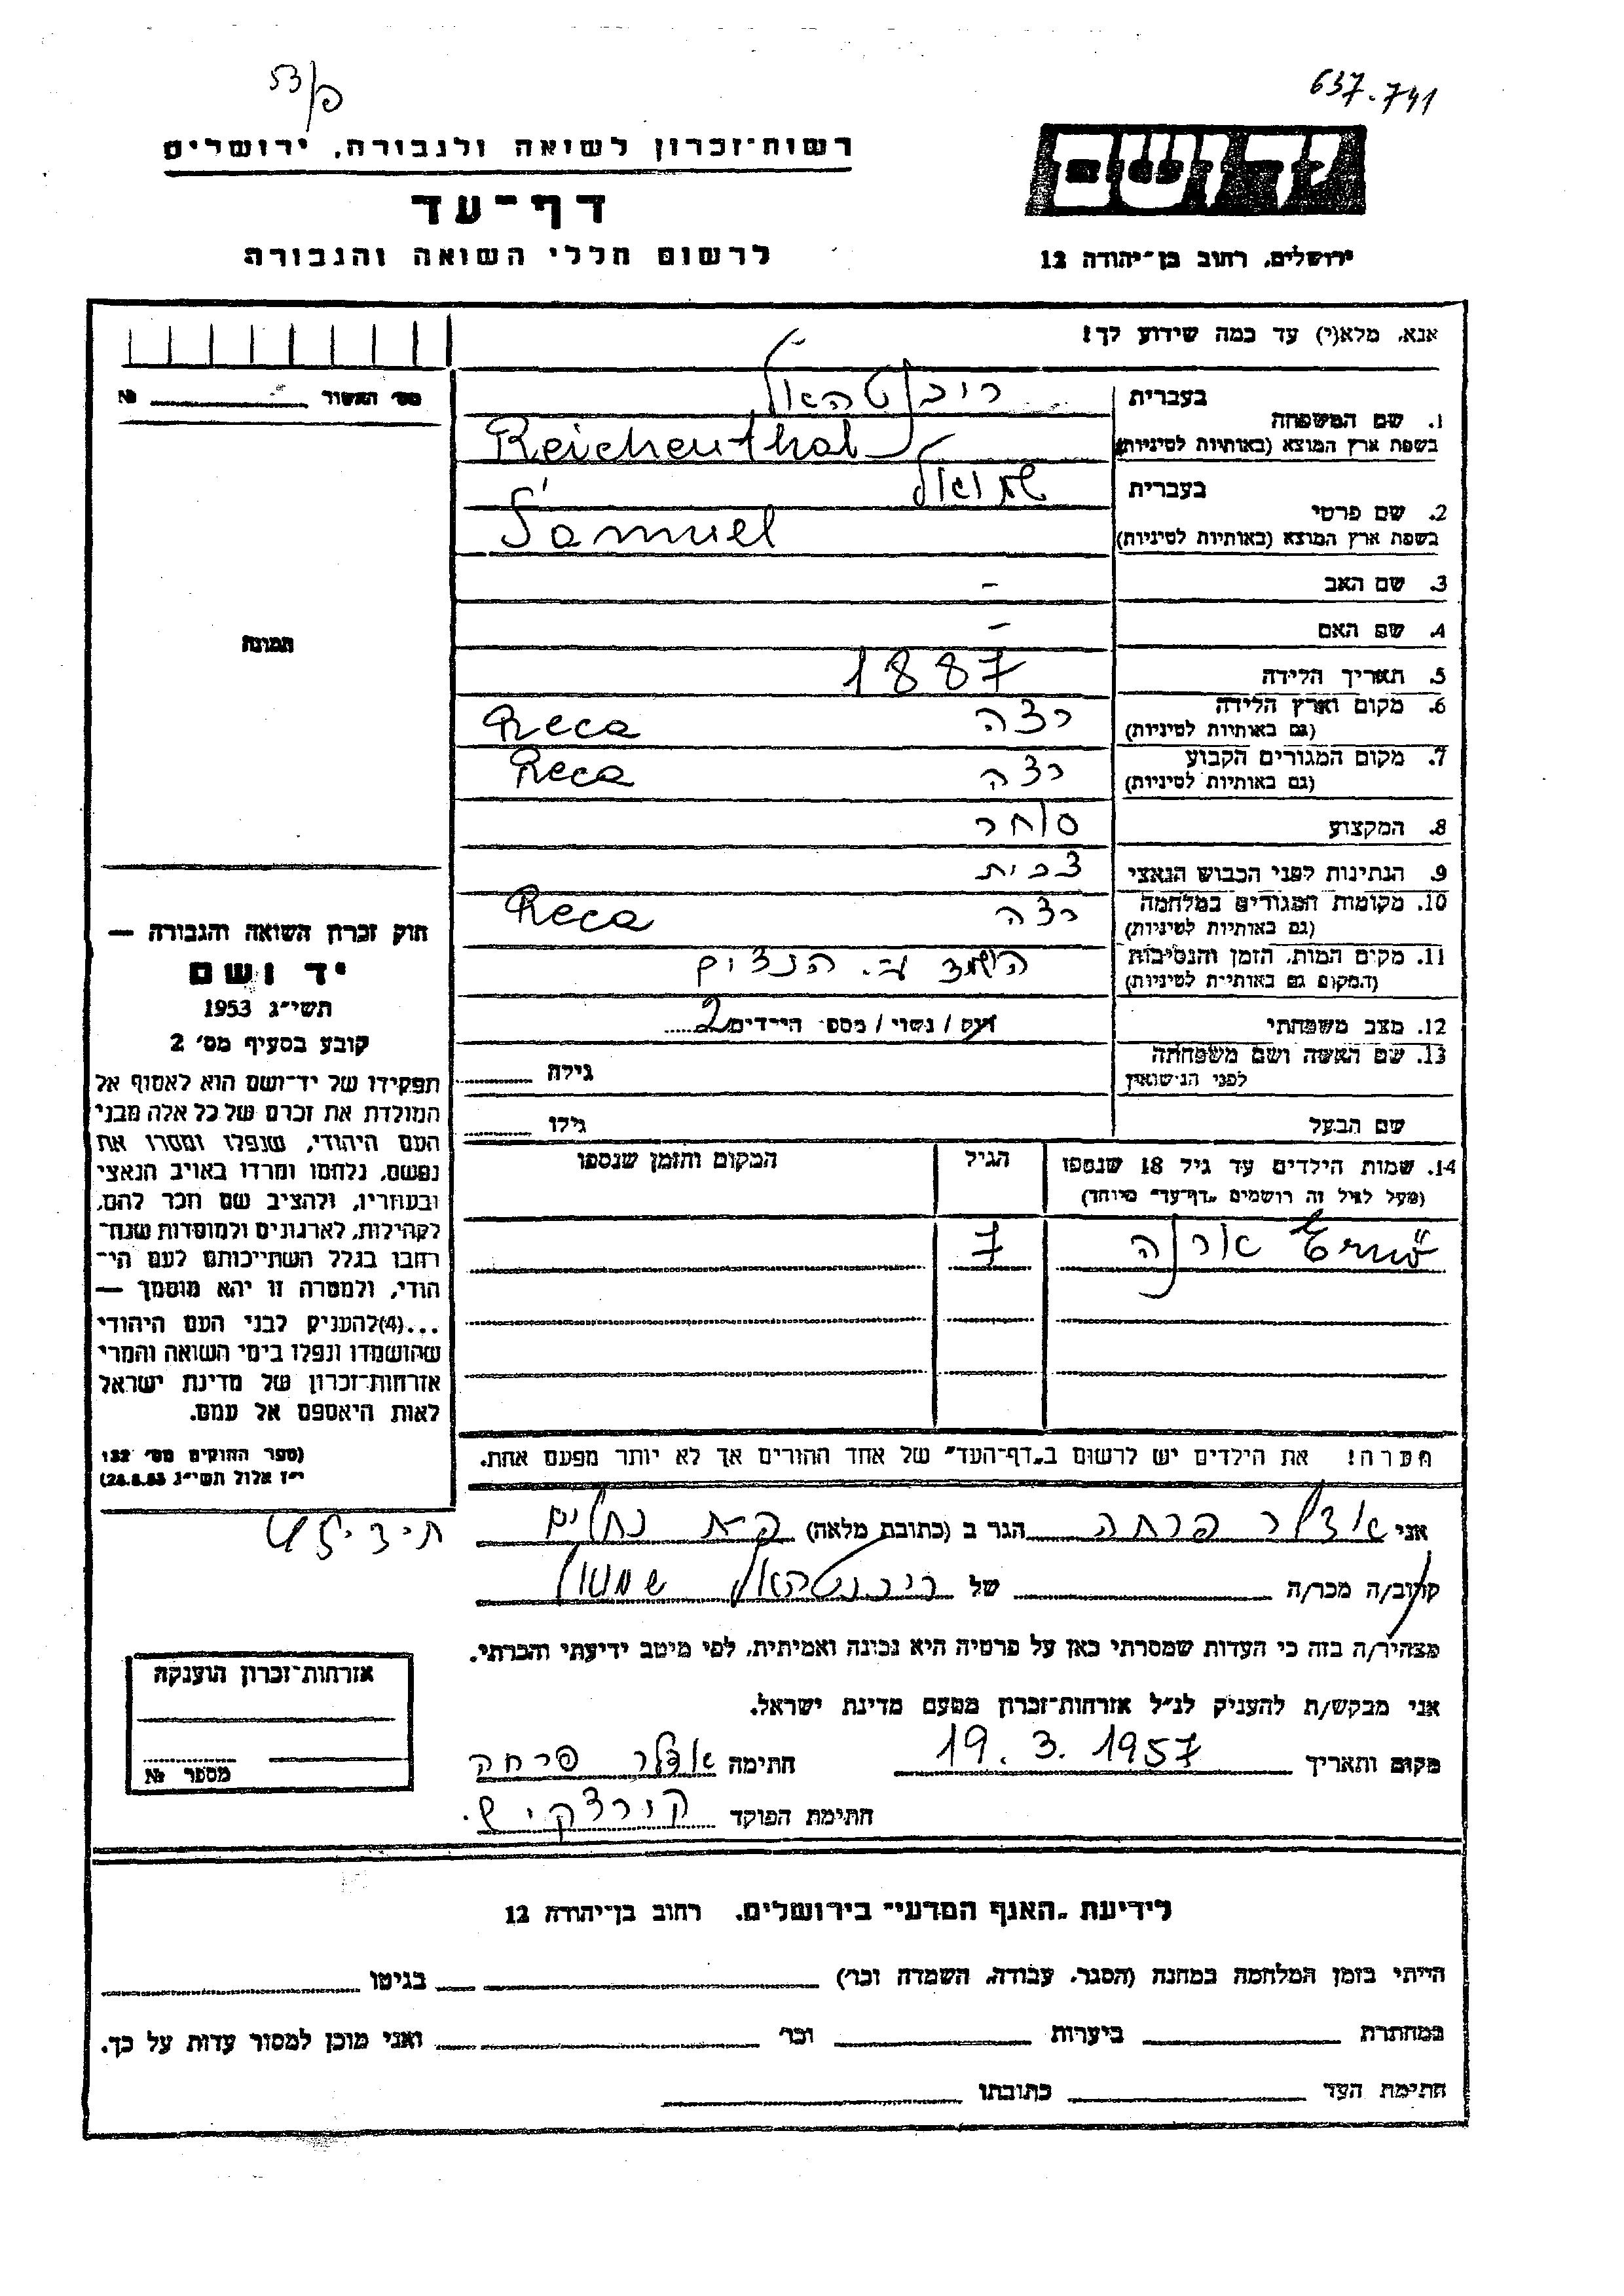 53/פ
637.741
רשות־זכרון לשואה ולגבורה, ירושלים
דף־עד
לרשום חללי השואה והגבורה
יד ושם
ירושלים, רחוב בן־יהודה 12
אנא, מלא(י) עד כמה שידוע לך!
מס׳ האשור № 
תמונה
1. שם המשפחה
בעברית רייכנטהאל
בשפת ארץ המוצא (באותיות לטיניות) Reichenthal
2. שם פרטי
בעברית שמואל
בשפת ארץ המוצא (באותיות לטיניות) Samuel
3. שם האב -
4. שם האם -
5. תאריך הלידה 1887
6. מקום וארץ הלידה רצה Reca
(גם באותיות לטיניות)
7. מקום המגורים הקבוע רצה Reca
(גם באותיות לטיניות)
8. המקצוע סוחר
9. הנתינות לפני הכבוש הנאצי צ׳כית
10. מקומות המגורים במלחמה רצה Reca
(גם באותיות לטיניות)
11. מקום המות, הזמן והנסיבות הושמד ע״י הנאצים
(המקום גם באותיות לטיניות)
12. מצב משפחתי רווק / נשוי / מספר הילדים 2
13. שם האשה ושם משפחתה גילה
לפני הנישואין
שם הבעל גילו
14. שמות הילדים עד גיל 18 שנספו הגיל המקום והזמן שנספו
(מעל לגיל זה רושמים „דף־עד״ מיוחד)
Ernő 7
חוק זכרון השואה והגבורה —
יד ושם
תשי״ג 1953
קובע בסעיף מס׳ 2
תפקידו של יד־ושם הוא לאסוף אל
המולדת את זכרם של כל אלה מבני
העם היהודי, שנפלו ומסרו את
נפשם, נלחמו ומרדו באויב הנאצי
ובעוזריו, ולהציב שם וזכר להם,
לקהילות, לארגונים ולמוסדות שנח־
רבו בגלל השתייכותם לעם הי־
הודי, ולמטרה זו יהא מוסמך —
...(4)להעניק לבני העם היהודי
שהושמדו ונפלו בימי השואה והמרי
אזרחות־זכרון של מדינת ישראל
לאות היאספם אל עמם.
(ספר החוקים מס׳ 132
י״ז אלול תשי״ג 28.8.53)
הערה! את הילדים יש לרשום ב„דף־העד״ של אחד ההורים אך לא יותר מפעם אחת.
אני אדלר פרחה הגר ב (כתובת מלאה)
קרוב/ה מכר/ה של רייכנטהאל שמואל
מצהיר/ה בזה כי העדות שמסרתי כאן על פרטיה היא נכונה ואמיתית, לפי מיטב ידיעתי והכרתי.
אני מבקש/ת להעניק לנ״ל אזרחות־זכרון מטעם מדינת ישראל.
מקום ותאריך 19.3.1957 חתימה אדלר פרחה
חתימת הפוקד
אזרחות־זכרון הוענקה
מספר №
לידיעת „האגף המדעי״ בירושלים, רחוב בן־יהודה 12
הייתי בזמן המלחמה במחנה (הסגר, עבודה, השמדה וכו׳) בגיטו
במחתרת ביערות וכו׳ ואני מוכן למסור עדות על כך.
חתימת העד כתובתו